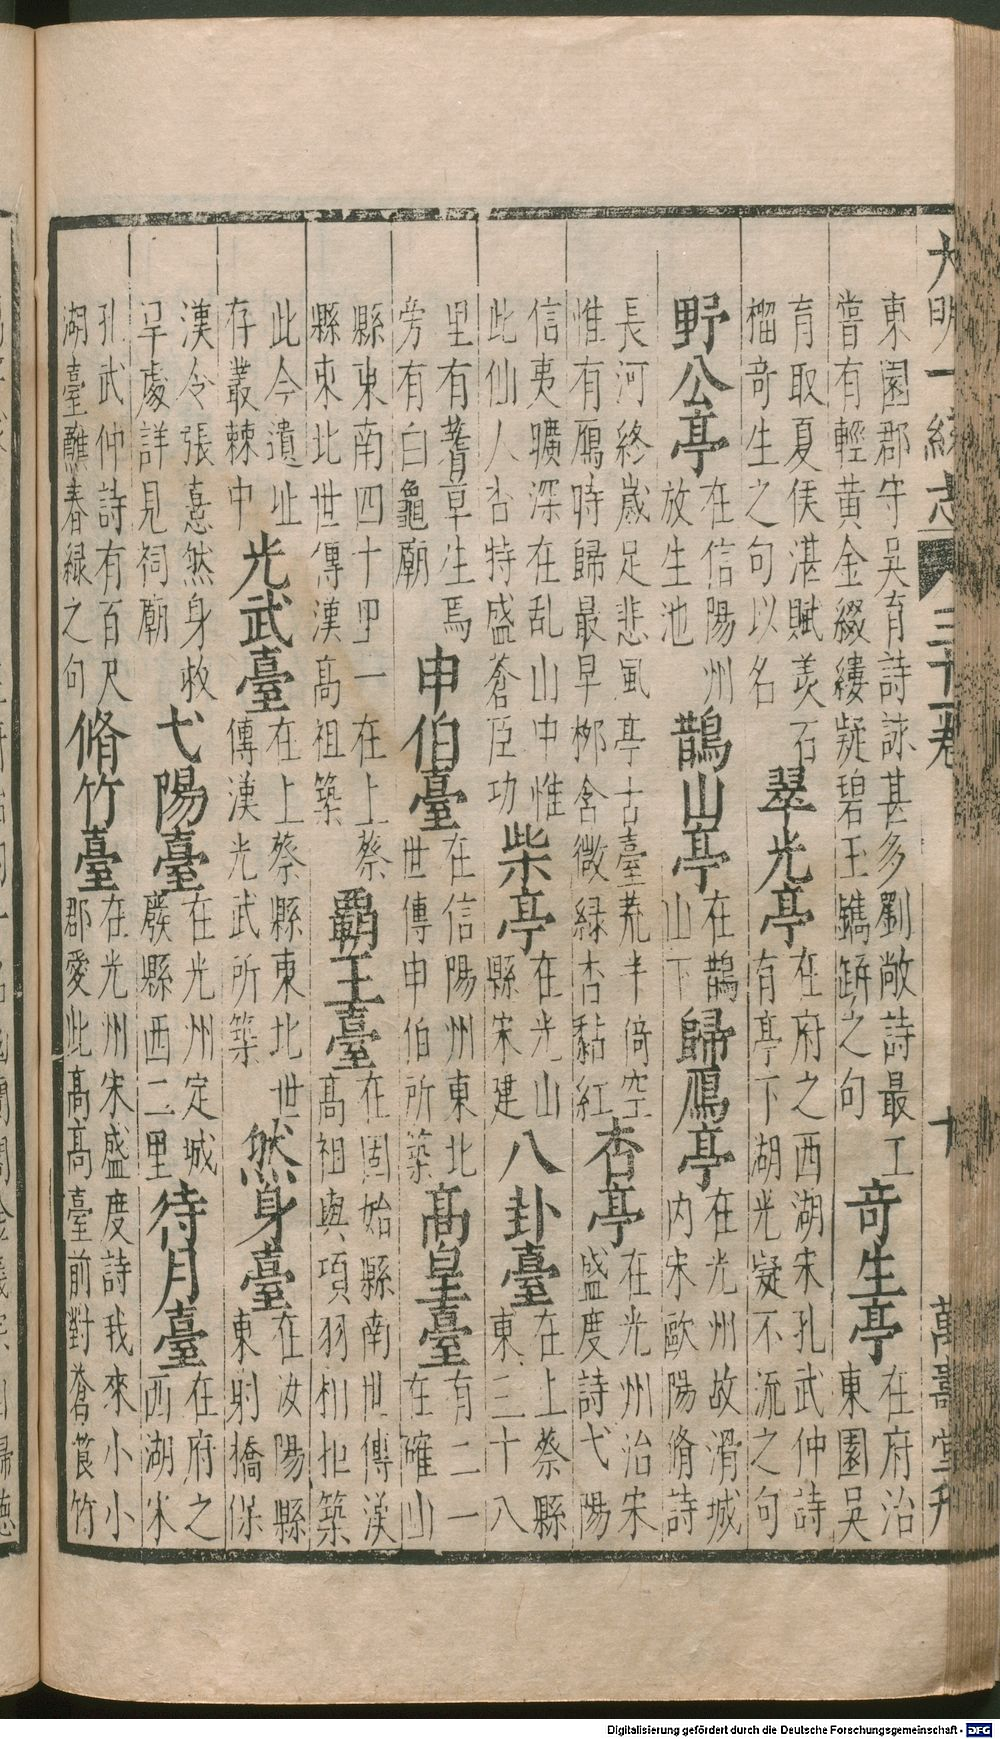 大明一統志 三十一卷 十 萬壽堂刋
東園郡守吳育詩詠甚多劉敞詩最工嘗有輕黃金綴縷疑碧玉鐫缾之句竒生亭在府治東園吳
育取夏侯湛賦羙石榴竒生之句以名翠光亭在府之西湖宋孔武仲詩有亭下湖光凝不流之句
野公亭在信陽州放生池鵲山亭在鵲山下歸鴈亭在光州故滑城内宋歐陽脩詩
長河終歲足悲風亭古臺荒半倚空惟有鴈時歸最早栁含微緑杏黏紅杏亭在光州治宋盛度詩弋陽
信夷曠深在乱山中惟此仙人杏特盛蒼臣功柴亭在光山縣宋建八卦臺在上蔡縣東三十八
里有蓍草生焉旁有白龜廟申伯臺在信陽州東北世傳申伯所築髙皇臺有二一在確山
縣東南四十里一在上蔡縣東北世傳漢髙祖築覇王臺在固始縣南世傳漢髙祖與項羽相拒築
此今遺址存叢棘中光武臺在上蔡縣東北世傳漢光武所築然身臺在汝陽縣東射橋保
漢令張憙然身救旱處詳見祠廟弋陽臺在光州定城廢縣西二里待月臺在府之西湖宋
孔武仲詩有百尺湖臺蘸春緑之句脩竹臺在光州宋盛度詩我來小小郡愛此髙髙臺前對蒼筤竹
Digitalisierung gefördert durch die Deutsche Forschungsgemeinschaft - DFG